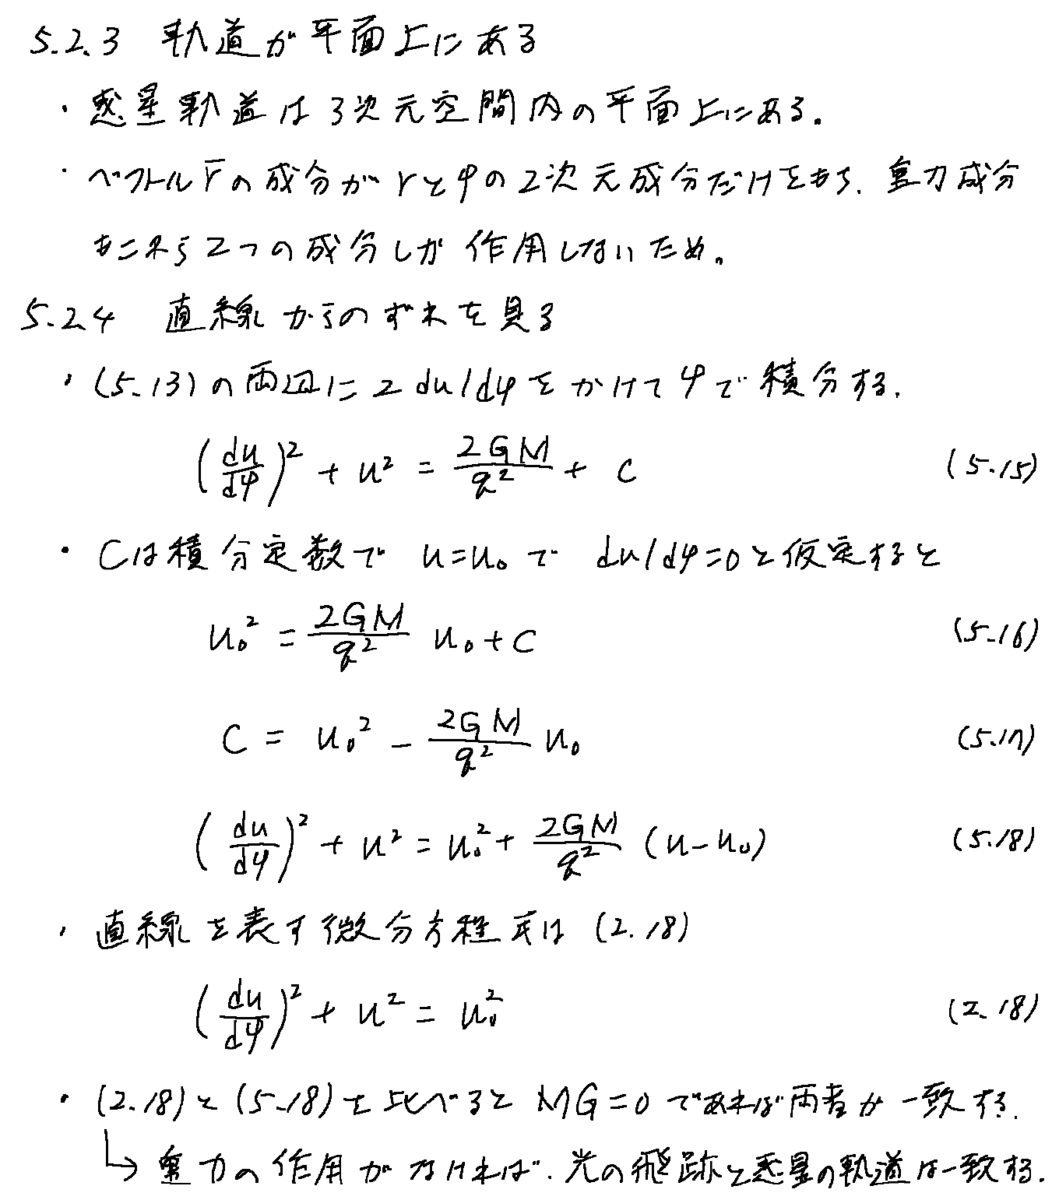 5.2.3 軌道が平面上にある
・惑星軌道は3次元空間内の平面上にある。
・ベクトルr̄の成分がrとφの2次元成分だけをもち、重力成分
もこれら2つの成分しか作用しないため。
5.2.4 直線からのずれを見る
・(5.13)の両辺に 2 du/dφ をかけてφで積分する.
(du/dφ)² + u² = 2GM/q² + C (5.15)
・Cは積分定数で u=u₀ で du/dφ=0と仮定すると
u₀² = 2GM/q² u₀ + C (5.16)
C = u₀² - 2GM/q² u₀ (5.17)
(du/dφ)² + u² = u₀² + 2GM/q² (u-u₀) (5.18)
・直線を表す微分方程式は (2.18)
(du/dφ)² + u² = u₀² (2.18)
・(2.18)と(5.18)を比べると MG=0 であれば両者が一致する.
↳ 重力の作用がなければ、光の飛跡と惑星の軌道は一致する.